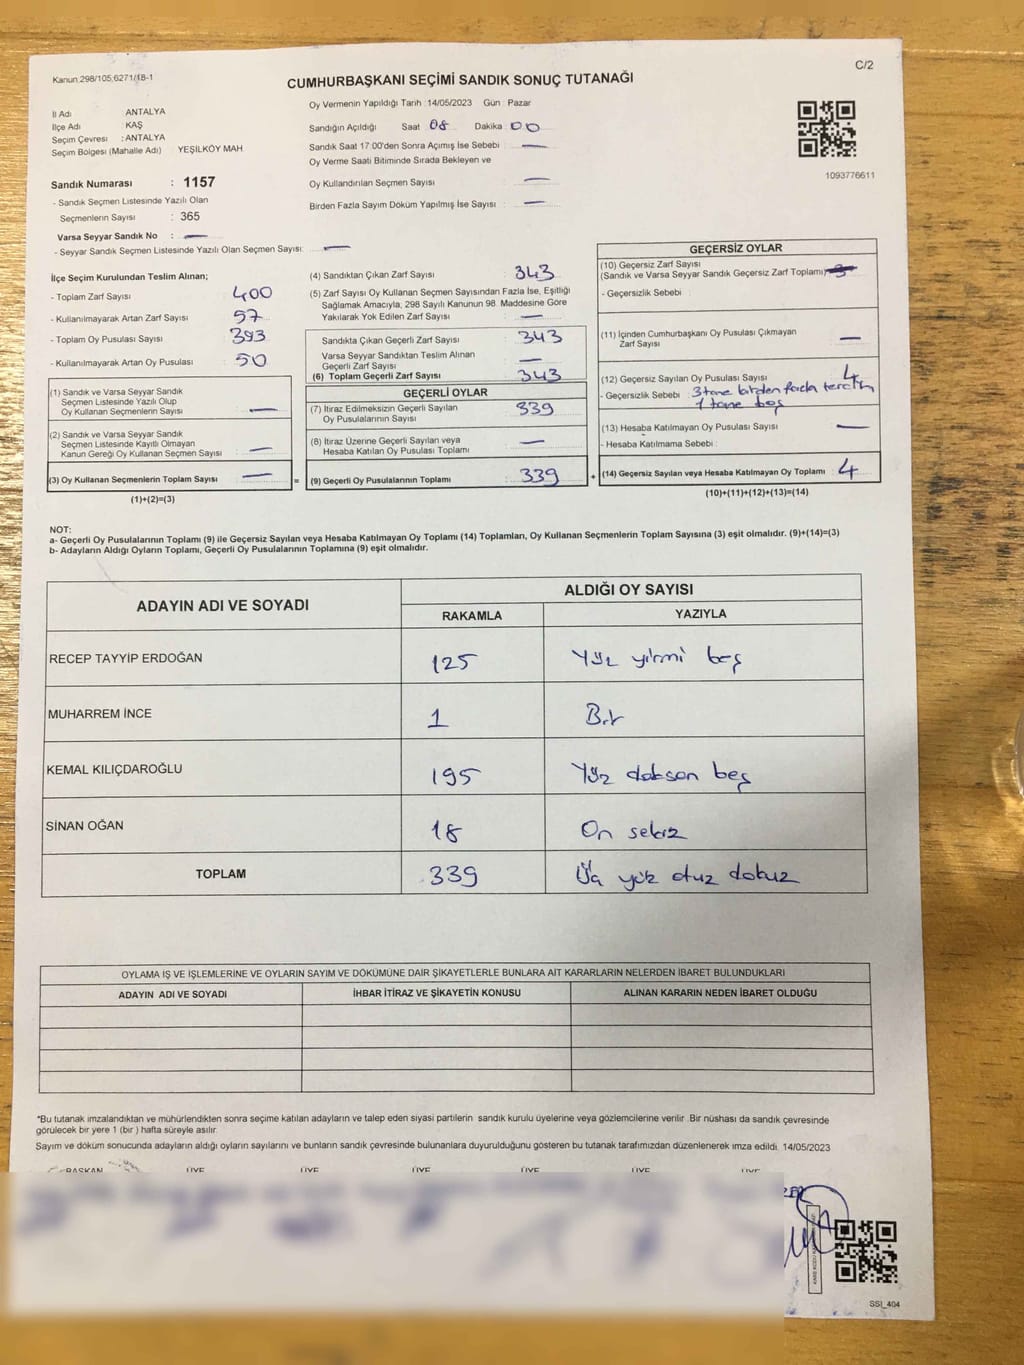 Kanun 298/105;6271/18-1
C/2
CUMHURBAŞKANI SEÇİMİ SANDIK SONUÇ TUTANAĞI
İl Adı : ANTALYA
İlçe Adı : KAŞ
Seçim Çevresi : ANTALYA
Seçim Bölgesi (Mahalle Adı) YEŞİLKÖY MAH.
Oy Vermenin Yapıldığı Tarih : 14/05/2023 Gün : Pazar
Sandığın Açıldığı Saat 08 Dakika : 00
Sandık Saat 17:00'den Sonra Açımış İse Sebebi : —
Oy Verme Saati Bitiminde Sırada Bekleyen ve
Oy Kullandırılan Seçmen Sayısı —
Birden Fazla Sayım Döküm Yapılmış İse Sayısı : —
1093776611
Sandık Numarası : 1157
- Sandık Seçmen Listesinde Yazılı Olan
Seçmenlerin Sayısı : 365
Varsa Seyyar Sandık No : —
- Seyyar Sandık Seçmen Listesinde Yazılı Olan Seçmen Sayısı: —
İlçe Seçim Kurulundan Teslim Alınan;
- Toplam Zarf Sayısı 400
- Kullanılmayarak Artan Zarf Sayısı 57
- Toplam Oy Pusulası Sayısı 393
- Kullanılmayarak Artan Oy Pusulası 50
(1) Sandık ve Varsa Seyyar Sandık
Seçmen Listesinde Yazılı Olup
Oy Kullanan Seçmenlerin Sayısı : —
(2) Sandık ve Varsa Seyyar Sandık
Seçmen Listesinde Kayıtlı Olmayan
Kanun Gereği Oy Kullanan Seçmen Sayısı : —
(3) Oy Kullanan Seçmenlerin Toplam Sayısı —
(1)+(2)=(3)
=
(4) Sandıktan Çıkan Zarf Sayısı : 343
(5) Zarf Sayısı Oy Kullanan Seçmen Sayısından Fazla İse, Eşitliği
Sağlamak Amacıyla, 298 Sayılı Kanunun 98. Maddesine Göre
Yakılarak Yok Edilen Zarf Sayısı : —
Sandıkta Çıkan Geçerli Zarf Sayısı : 343
Varsa Seyyar Sandıktan Teslim Alınan
Geçerli Zarf Sayısı : —
(6) Toplam Geçerli Zarf Sayısı : 343
GEÇERLİ OYLAR
(7) İtiraz Edilmeksizin Geçerli Sayılan
Oy Pusulalarının Sayısı : 339
(8) İtiraz Üzerine Geçerli Sayılan veya
Hesaba Katılan Oy Pusulası Toplamı : —
(9) Geçerli Oy Pusulalarının Toplamı : 339
+
GEÇERSİZ OYLAR
(10) Geçersiz Zarf Sayısı
(Sandık ve Varsa Seyyar Sandık Geçersiz Zarf Toplamı):
- Geçersizlik Sebebi :
(11) İçinden Cumhurbaşkanı Oy Pusulası Çıkmayan
Zarf Sayısı : —
(12) Geçersiz Sayılan Oy Pusulası Sayısı : 4
- Geçersizlik Sebebi : 3 tane birden fazla tercih
1 tane boş
(13) Hesaba Katılmayan Oy Pusulası Sayısı : —
- Hesaba Katılmama Sebebi :
(14) Geçersiz Sayılan veya Hesaba Katılmayan Oy Toplamı : 4
(10)+(11)+(12)+(13)=(14)
NOT:
a- Geçerli Oy Pusulalarının Toplamı (9) ile Geçersiz Sayılan veya Hesaba Katılmayan Oy Toplamı (14) Toplamları, Oy Kullanan Seçmenlerin Toplam Sayısına (3) eşit olmalıdır. (9)+(14)=(3)
b- Adayların Aldığı Oyların Toplamı, Geçerli Oy Pusulalarının Toplamına (9) eşit olmalıdır.
ADAYIN ADI VE SOYADI ALDIĞI OY SAYISI
RAKAMLA YAZIYLA
RECEP TAYYİP ERDOĞAN 125 Yüz yirmi beş
MUHARREM İNCE 1 Bir
KEMAL KILIÇDAROĞLU 195 Yüz doksan beş
SİNAN OĞAN 18 On sekiz
TOPLAM 339 Üç yüz otuz dokuz
OYLAMA İŞ VE İŞLEMLERİNE VE OYLARIN SAYIM VE DÖKÜMÜNE DAİR ŞİKAYETLERLE BUNLARA AİT KARARLARIN NELERDEN İBARET BULUNDUKLARI
ADAYIN ADI VE SOYADI İHBAR İTİRAZ VE ŞİKAYETİN KONUSU ALINAN KARARIN NEDEN İBARET OLDUĞU
*Bu tutanak imzalandıktan ve mühürlendikten sonra seçime katılan adayların ve talep eden siyasi partilerin sandık kurulu üyelerine veya gözlemcilerine verilir .Bir nüshası da sandık çevresinde
görülecek bir yere 1 (bir ) hafta süreyle asılır.
Sayım ve döküm sonucunda adayların aldığı oyların sayılarını ve bunların sandık çevresinde bulunanlara duyurulduğunu gösteren bu tutanak tarafımızdan düzenlenerek imza edildi. 14/05/2023
BAŞKAN ÜYE ÜYE ÜYE ÜYE ÜYE ÜYE
SSI_404